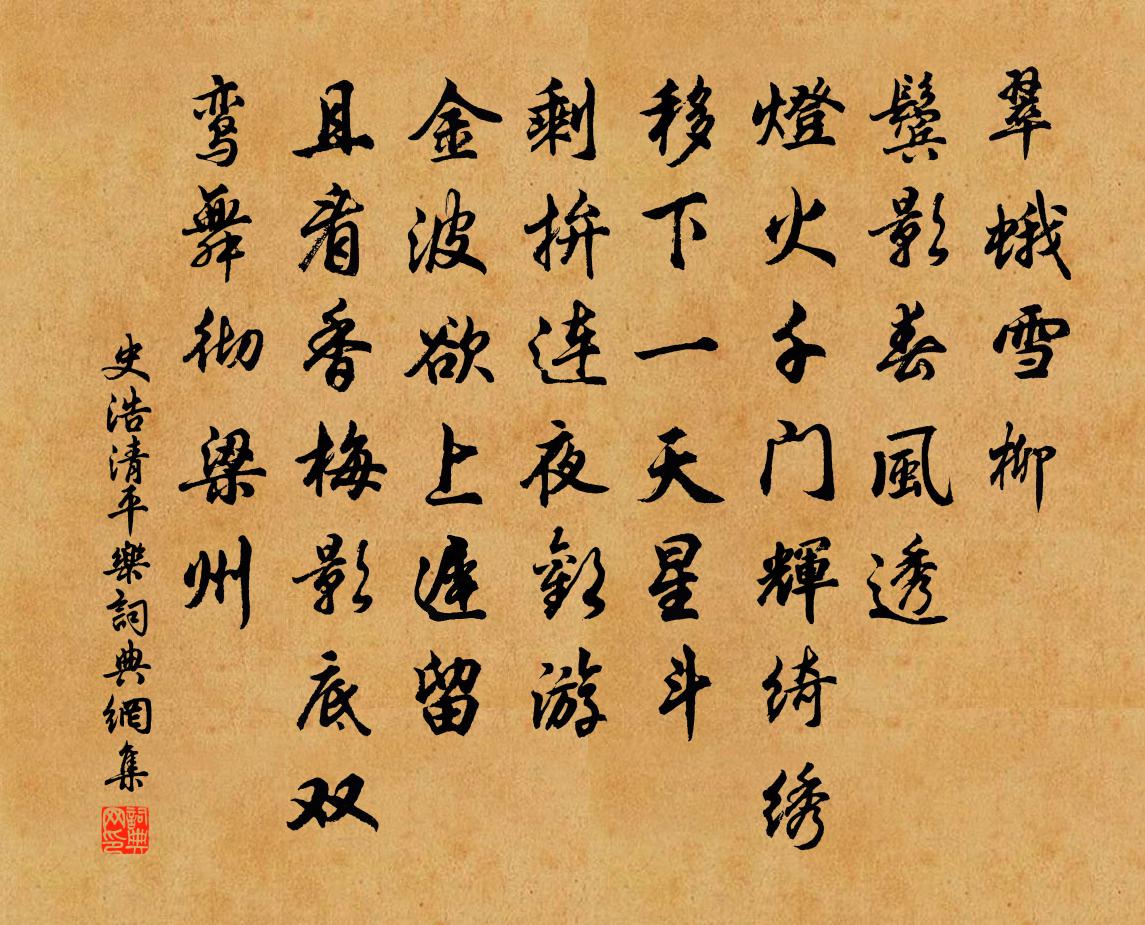 翠蛾雪柳
鬓影春風透
燈火千门輝绮绣
移下一天星斗
剩拚连夜歡游
金波欲上遲留
且看香梅影底双
鸾舞彻梁州
史浩清平樂詞典網集
詞典网印